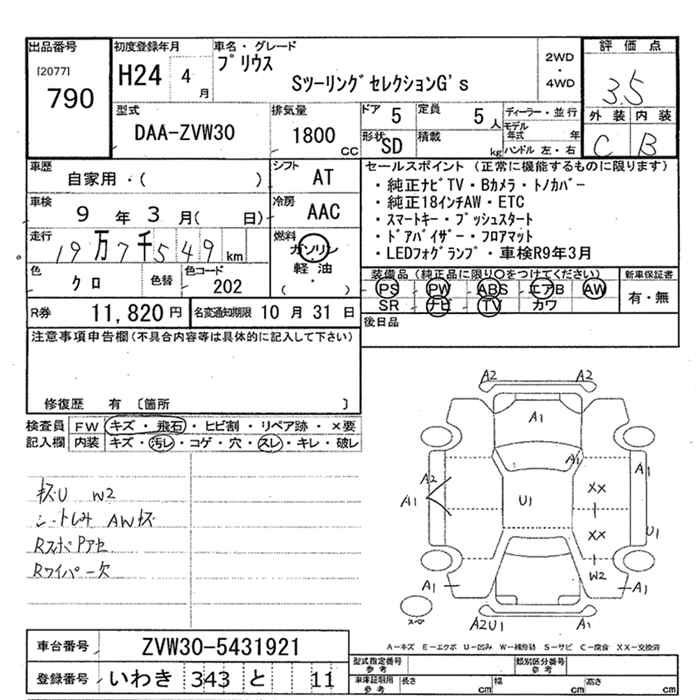 出品番号
[2077]
790
初度登録年月
H24 4 月
車名・グレード
プリウス
SツーリングセレクションG's
2WD
・
4WD
評価点
3.5
外装 内装
C B
型式
DAA-ZVW30
排気量
1800 CC
ドア 5
定員 5 人
形状 SD
積載 kg
ディーラー・並行
モデル年式 年
ハンドル 左・右
車歴
自家用・( )
シフト AT
車検
9 年 3 月( 日)
冷房 AAC
走行
19万7千549 km
燃料
ガソリン
軽油
( ・ )
色 クロ
色替
色コード 202
R券 11,820 円
名変通知期限 10 月 31 日
セールスポイント (正常に機能するものに限ります)
・純正ナビTV・Bカメラ・トノカバー
・純正18インチAW・ETC
・スマートキー・プッシュスタート
・ドアバイザー・フロアマット
・LEDフォグランプ・車検R9年3月
装備品 (純正品に限り○をつけてください)
PS PW ABS エアB AW
SR ナビ TV カワ
新車保証書
有・無
後日品
注意事項申告欄(不具合内容等は具体的に記入して下さい)
修復歴 有 〔箇所 〕
検査員記入欄
FW キズ・飛石・ヒビ割・リペア跡・×要
内装 キズ・汚レ・コゲ・穴・スレ・キレ・破レ
キズU W2
シートしみ AWキズ
RスポPアセ
Rワイパー欠
A2 A2
A1
A1 A1
A2
A1
U1
XX
XX
U1
W2
A1 A1
A2U1
スペア
A-キズ E-エクボ U-凹み W-補修跡 S-サビ C-腐食 XX-交換済
車台番号 ZVW30-5431921
登録番号 いわき 343 と 11
型式指定番号 参考
類別区分番号 参考
車庫証明用 参考
長さ cm
幅 cm
高さ cm